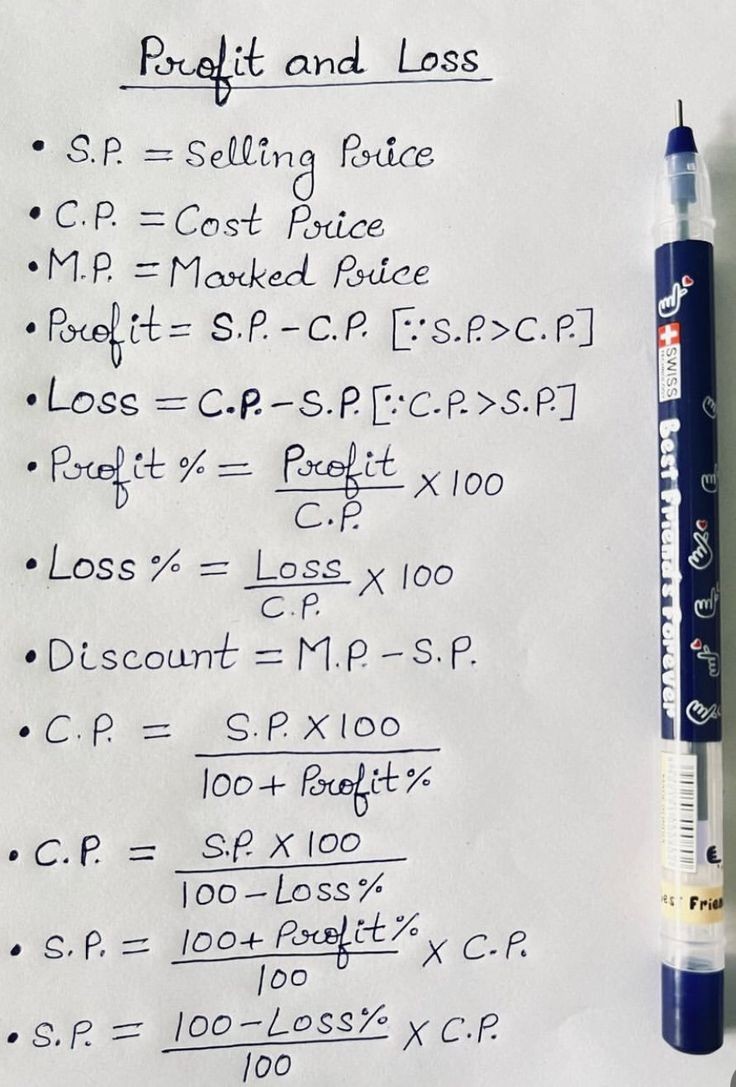 Profit and Loss
• S.P. = Selling Price
• C.P. = Cost Price
• M.P. = Marked Price
• Profit = S.P. - C.P. [∵ S.P. > C.P.]
• Loss = C.P. - S.P. [∵ C.P. > S.P.]
• Profit % = Profit / C.P. × 100
• Loss % = Loss / C.P. × 100
• Discount = M.P. - S.P.
• C.P. = S.P. × 100 / 100 + Profit %
• C.P. = S.P. × 100 / 100 - Loss %
• S.P. = 100 + Profit % / 100 × C.P.
• S.P. = 100 - Loss % / 100 × C.P.
SWISS
Best Friends Forever
Frien